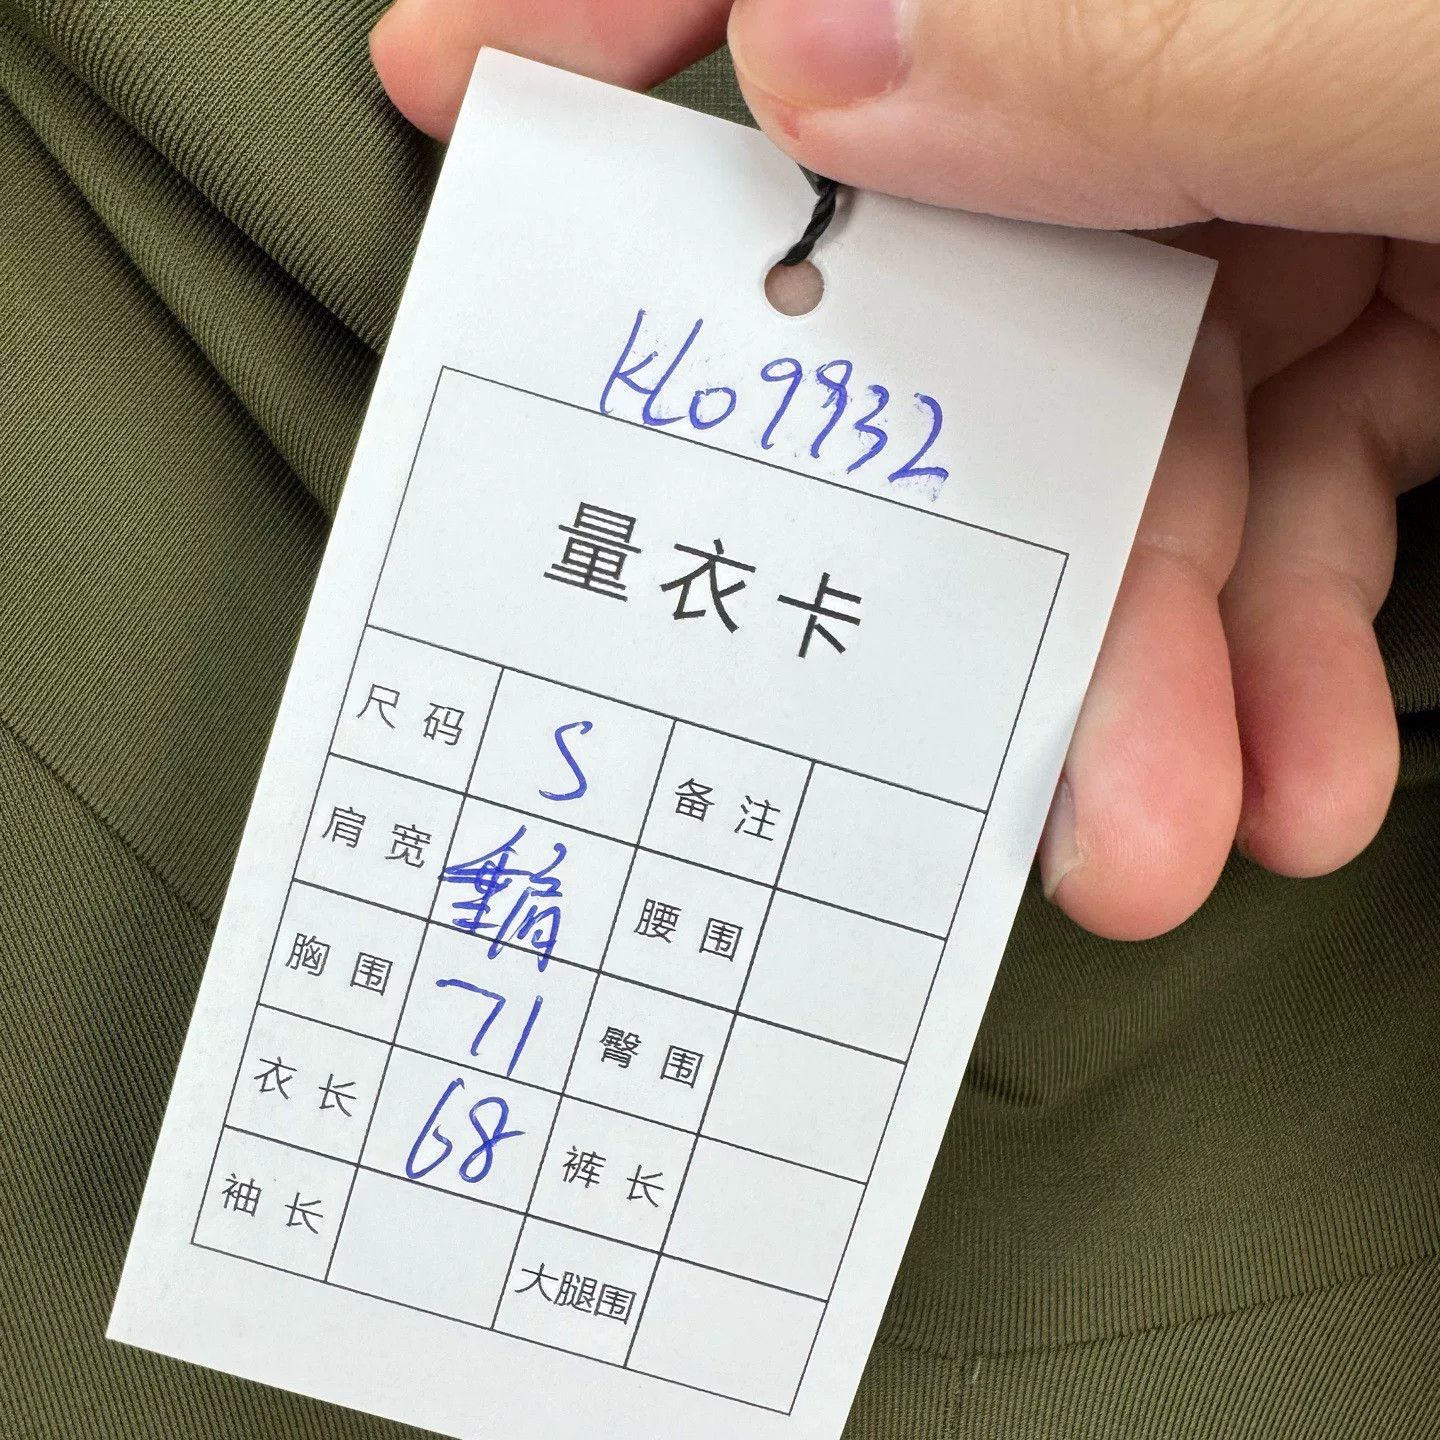 KL09932
量衣卡
尺码 S 备注
肩宽 垂肩 腰围
胸围 71 臀围
衣长 68 裤长
袖长 大腿围